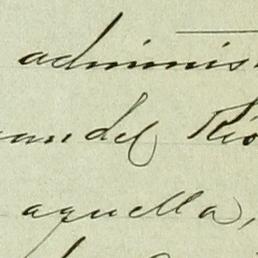 adminis
uan del Rio
aquella,